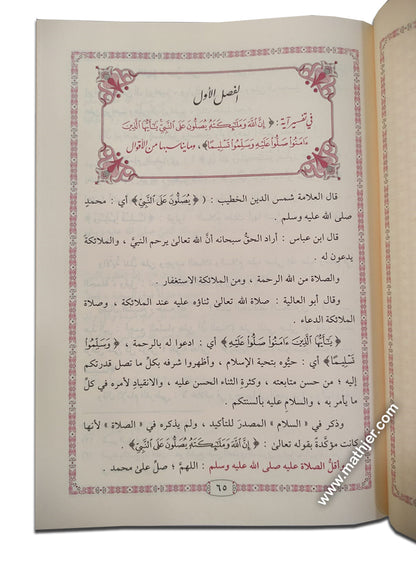 الفصل الأول
في تفسير آية : ﴿ إِنَّ اللَّهَ وَمَلَٰٓئِكَتَهُ يُصَلُّونَ عَلَى النَّبِيِّ يَٰٓأَيُّهَا الَّذِينَ
ءَامَنُوا صَلُّوا عَلَيْهِ وَسَلِّمُوا تَسْلِيمًا ﴾ ، وما يناسبها من الأقوال
قال العلامة شمس الدين الخطيب : ( ﴿ يُصَلُّونَ عَلَى النَّبِيِّ ﴾ أي : محمدٍ
صلى الله عليه وسلم .
قال ابن عباس : أراد الحقُّ سبحانه أنَّ الله تعالىٰ يرحم النبيَّ ، والملائكة
يدعون له .
والصلاة من الله الرحمة ، ومن الملائكة الاستغفار .
وقال أبو العالية : صلاة الله تعالىٰ ثناؤه عليه عند الملائكة ، وصلاة
الملائكة الدعاء .
﴿ يَٰٓأَيُّهَا الَّذِينَ ءَامَنُوا صَلُّوا عَلَيْهِ ﴾ أي : ادعوا له بالرحمة ، ﴿ وَسَلِّمُوا
تَسْلِيمًا ﴾ أي : حيُّوه بتحية الإسلام ، وأظهروا شرفه بكلِّ ما تصل قدرتكم
إليه ؛ من حسن متابعته ، وكثرةِ الثناء الحسن عليه ، والانقيادِ لأمره في كلِّ
ما يأمر به ، والسلامِ عليه بألسنتكم .
وذكر في « السلام » المصدرَ للتأكيد ، ولم يذكره في « الصلاة » لأنها
كانت مؤكَّدةً بقوله تعالىٰ : ﴿ إِنَّ اللَّهَ وَمَلَٰٓئِكَتَهُ يُصَلُّونَ عَلَى النَّبِيِّ ﴾ .
وأقلُّ الصلاة عليه صلى الله عليه وسلم : اللهمَّ ؛ صلِّ علىٰ محمد .
٦٥
www.mathjer.com